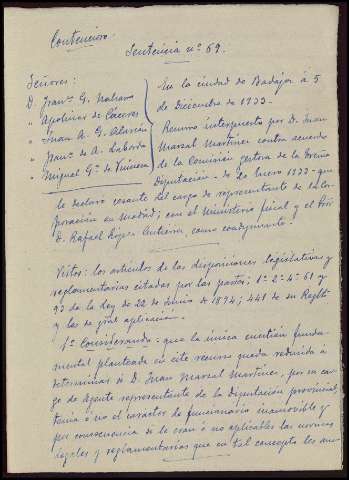 Contencioso.
Sentencia nº 69.
Señores:
D. Franco G. Naharro
" Apolinar de Cáceres
" Juan A. G. Alarcón
" Franco de A. Laborda
" Miguel Gª de
En la ciudad de Badajoz a 5
de Diciembre de 1933.
Recurso interpuesto por D. Juan
Marsal Martinez contra acuerdo
de la Comisión gestora de la Excma
Diputación - de 20 Enero 1933 - que
le declaró cesante del cargo de representante de la Cor-
poración en Madrid; con el Ministerio fiscal y el Pror
D. Rafael López Gutierrez, como coadyuvante.-
Vistos: los artículos de las disposiciones legislativas y
reglamentarias citadas por las partes: 1º 2º 4º 61 y
93 de la Ley de 22 de Junio de 1894; 441 de su Regltº
y las de gral aplicación.-
1º Considerando: que la única cuestión funda-
mental planteada en este recurso queda reducida á
determinar si D. Juan Marsal Martinez, por su car-
go de Agente representante de la Diputación provincial,
tenía ó no el carácter de funcionario inamovible y
por consecuencia si le eran ó no aplicables las normas
legales y reglamentarias que en tal concepto les am-